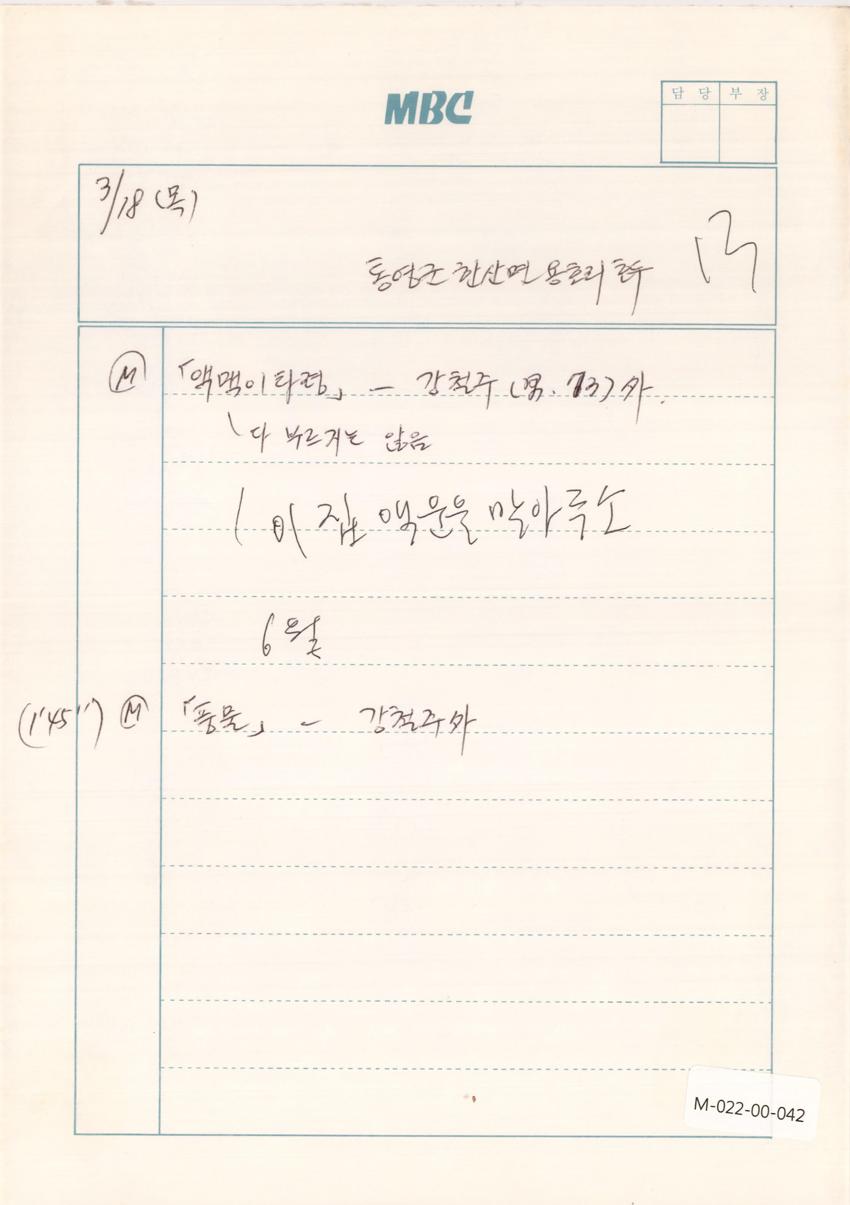 MBC
담 당 부 장
3/18 (목)
통영군 한산면 용호리 호두
Ⓜ 「액맥이타령」 — 강철주 (男. 73) 外.
다 부르지는 않음
이 집 액운을 막아주소
6월
(1'45'') Ⓜ 「풍물」 — 강철주 外
M-022-00-042